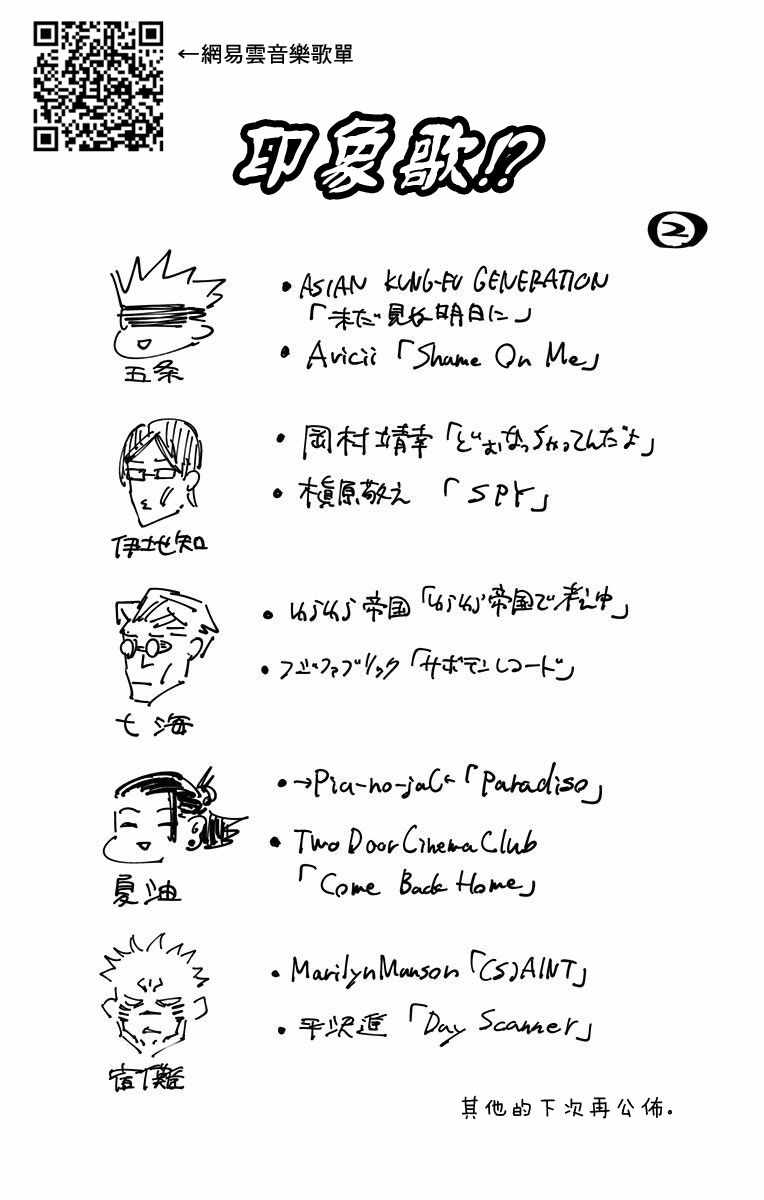 ←網易雲音樂歌單
印象歌!?
2
• ASIAN KUNG-FU GENERATION
「未だ見ぬ明日に」
• Avicii「Shame On Me」
五条
• 岡村靖幸「どぉなっちゃってんだよ」
• 槇原敬之「SPY」
伊地知
• ゆらゆら帝国「ゆらゆら帝国で考え中」
• フジファブリック「サボテンレコード」
七海
• →Pia-no-jaC←「Paradiso」
• Two Door Cinema Club
「Come Back Home」
夏油
• Marilyn Manson「(s)AINT」
• 平沢進「Day Scanner」
宿儺
其他的下次再公佈.